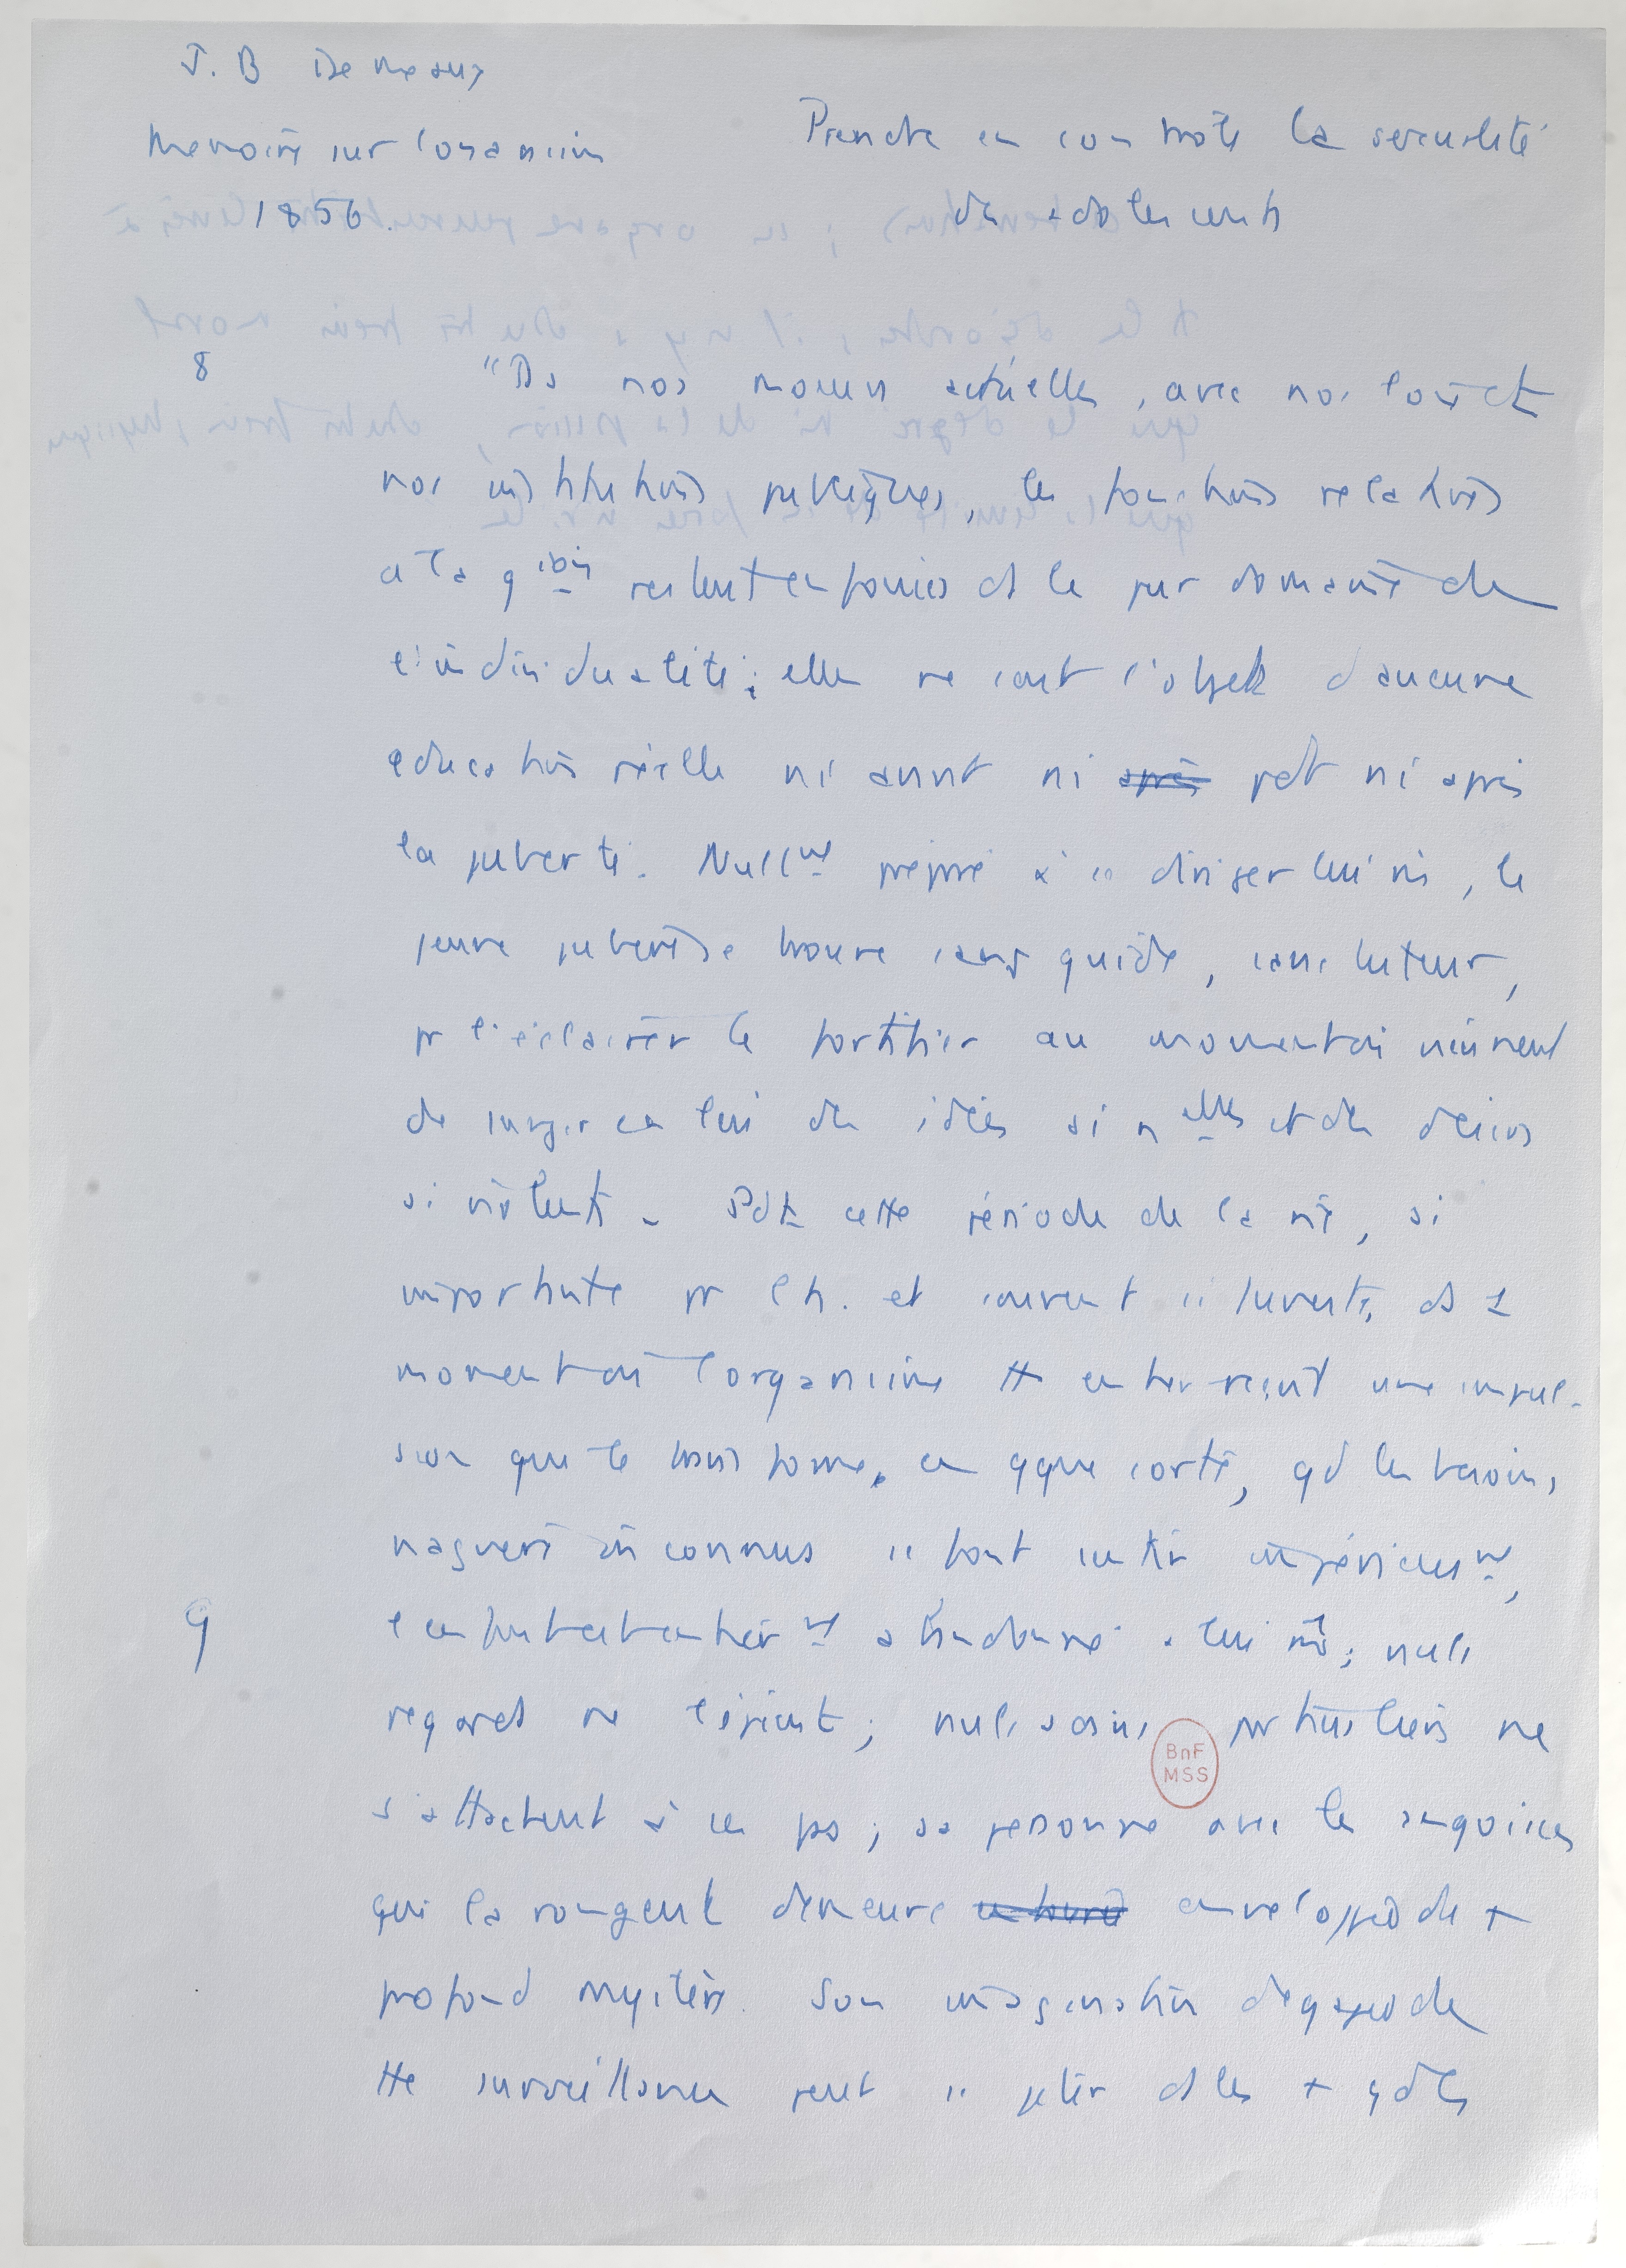 J. B Demeaux
Memoire sur l'onanisme
1856.
Prendre en controle la sexualité
des adolescents
8
"Ds nos moeurs actuelles, avec nos lois et
nos institutions publiques, les fonctions relatives
a la gion restent enfouies ds le pur domaine de
l'individualité; elles ne sont l'objet d'aucune
education réelle ni avant ni après pdt ni après
la puberté. Nullmt préparé à se diriger lui mê, le
jeune pubère se trouve sans guide, sans tuteur,
pr l'éclairer le fortifier au moment où viennent
de surgir en lui des idées si nelles et des désirs
si violents. Pdt cette période de la vie, si
importante pr l'h. et souvent si funeste, ds 1
moment où l'organisme tt entier reçoit une impul-
sion qui le transforme, en qque sorte, qd les besoins,
naguère inconnus se font sentir impérieusmt,
9
l'enfant est entièrmt abandonné à lui mê; nuls
regards ne l'épient; nuls soins particuliers ne
s'attachent à ses pas; sa personne avec les angoisses
qui la rongent demeure entouré enveloppé du +
profond mystère. Son imagination dégagée de
tte surveillance peut se jeter ds les + gds
BnF
MSS